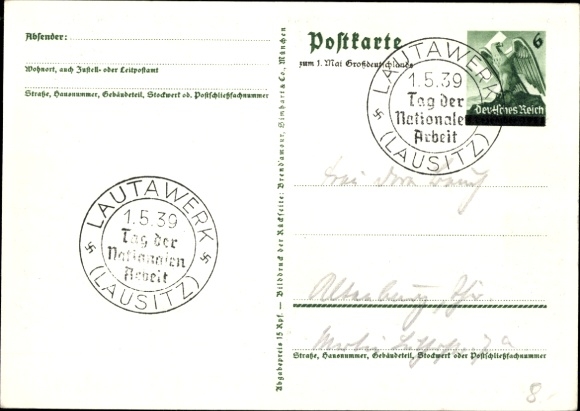 Absender:
Wohnort, auch Zustell- oder Leitpostamt
Straße, Hausnummer, Gebäudeteil, Stockwerk od. Postschließfachnummer
LAUTAWERK
1.5.39
Tag der
Nationalen
Arbeit
(LAUSITZ)
Abgabepreis 15 Rpf. — Bilddruck der Rückseite: Brend'amour, Simhart & Co., München
Postkarte
zum 1. Mai Großdeutschlands
6
Deutsches Reich
LAUTAWERK
1.5.39
Tag der
Nationalen
Arbeit
(LAUSITZ)
Altenburg, Thür
Straße, Hausnummer, Gebäudeteil, Stockwerk oder Postschließfachnummer
8.